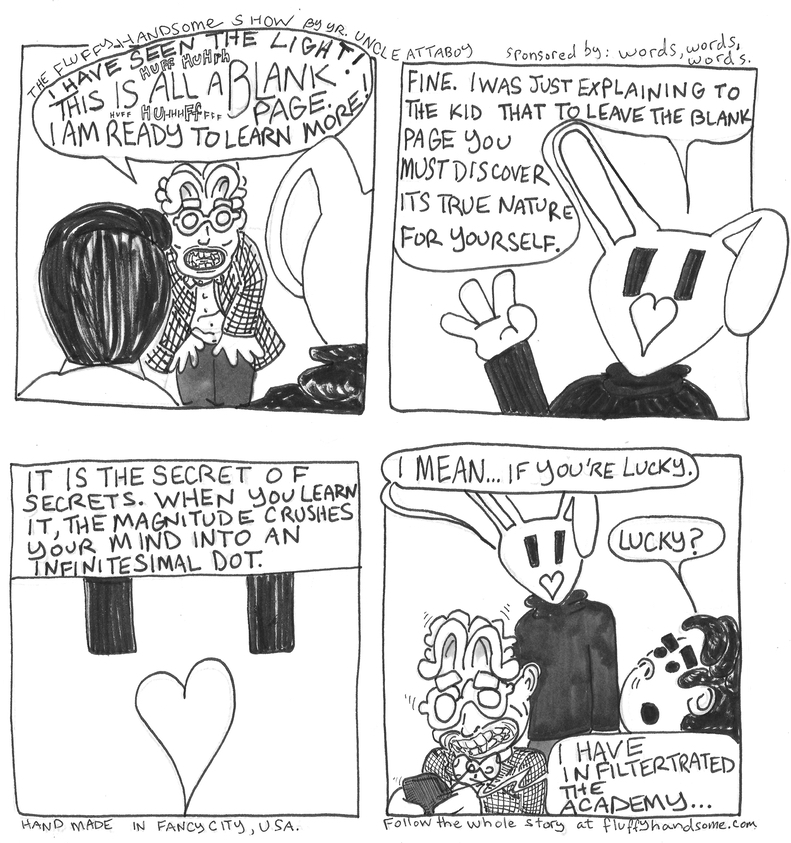 THE FLUFFY-HANDSOME SHOW BY YR. UNCLE ATTABOY
sponsored by: words, words,
words.
I HAVE SEEN THE LIGHT!
HUFF HUHPh
THIS IS ALL A BLANK
PAGE.
HUFF HUHHHFFFFF
I AM READY TO LEARN MORE!
FINE. I WAS JUST EXPLAINING TO
THE KID THAT TO LEAVE THE BLANK
PAGE YOU
MUST DISCOVER
ITS TRUE NATURE
FOR YOURSELF.
IT IS THE SECRET OF
SECRETS. WHEN YOU LEARN
IT, THE MAGNITUDE CRUSHES
YOUR MIND INTO AN
INFINITESIMAL DOT.
I MEAN... IF YOU'RE LUCKY.
LUCKY?
I HAVE
INFILTERTRATED
THE
ACADEMY...
HAND MADE IN FANCY CITY, USA.
Follow the whole story at fluffyhandsome.com